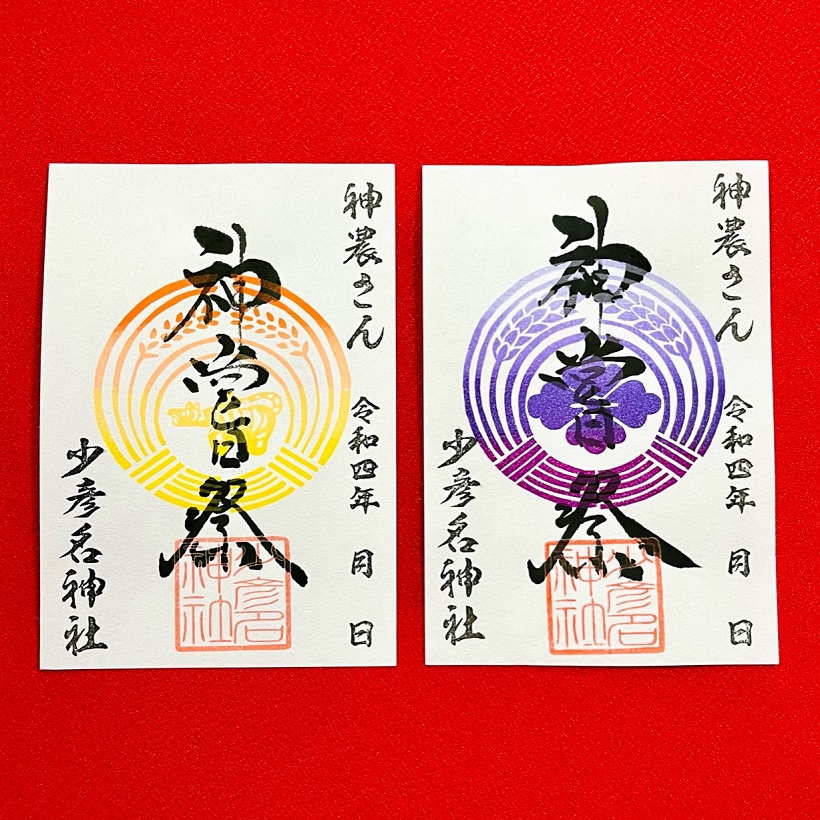 神農さん
令和四年 月 日
神嘗祭
少彦名
神社
少彦名神社
神農さん
令和四年 月 日
神嘗祭
少彦名
神社
少彦名神社